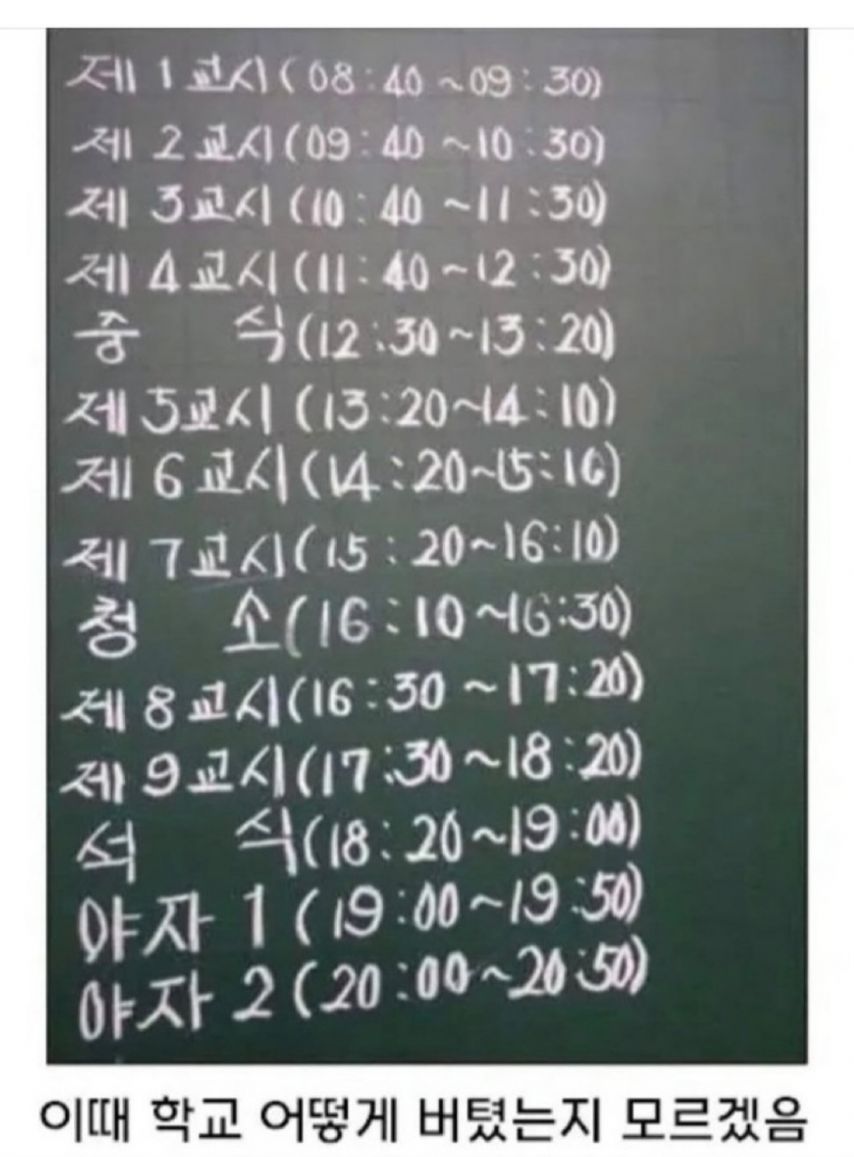 제 1 교시 (08:40 ~09:30)
제 2 교시 (09:40 ~10:30)
제 3교시 (10:40 ~11:30)
제 4 교시 (11:40 ~12:30)
중 식 (12:30~13:20)
제 5교시 (13:20~14:10)
제 6 교시 (14:20~15:10)
제 7교시 (15:20~16:10)
청 소 (16:10~16:30)
제 8교시 (16:30 ~17:20)
제 9교시 (17:30~18:20)
석 식 (18:20~19:00)
야자 1 (19:00~19:50)
야자 2 (20:00~20:50)
이때 학교 어떻게 버텼는지 모르겠음